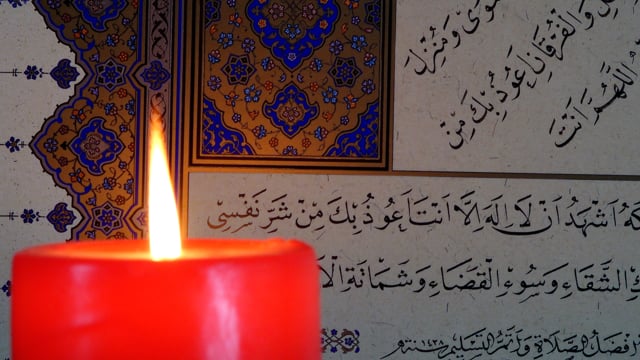 وَمُنْزِلَ
وَالْفُرْقَانِ اَعُوذُ بِكَ مِنْ
اَللّٰهُمَّ اَنْتَ
اَشْهَدُ اَنْ لَا اِلٰهَ اِلَّا اَنْتَ اَعُوذُ بِكَ مِنْ شَرِّ نَفْسِي
الشَّقَاءِ وَسُوءِ الْقَضَاءِ وَشَمَاتَةِ
الصَّلَاةِ وَاَتَمُّ التَّسْلِيمِ سنة ١٤٣٨